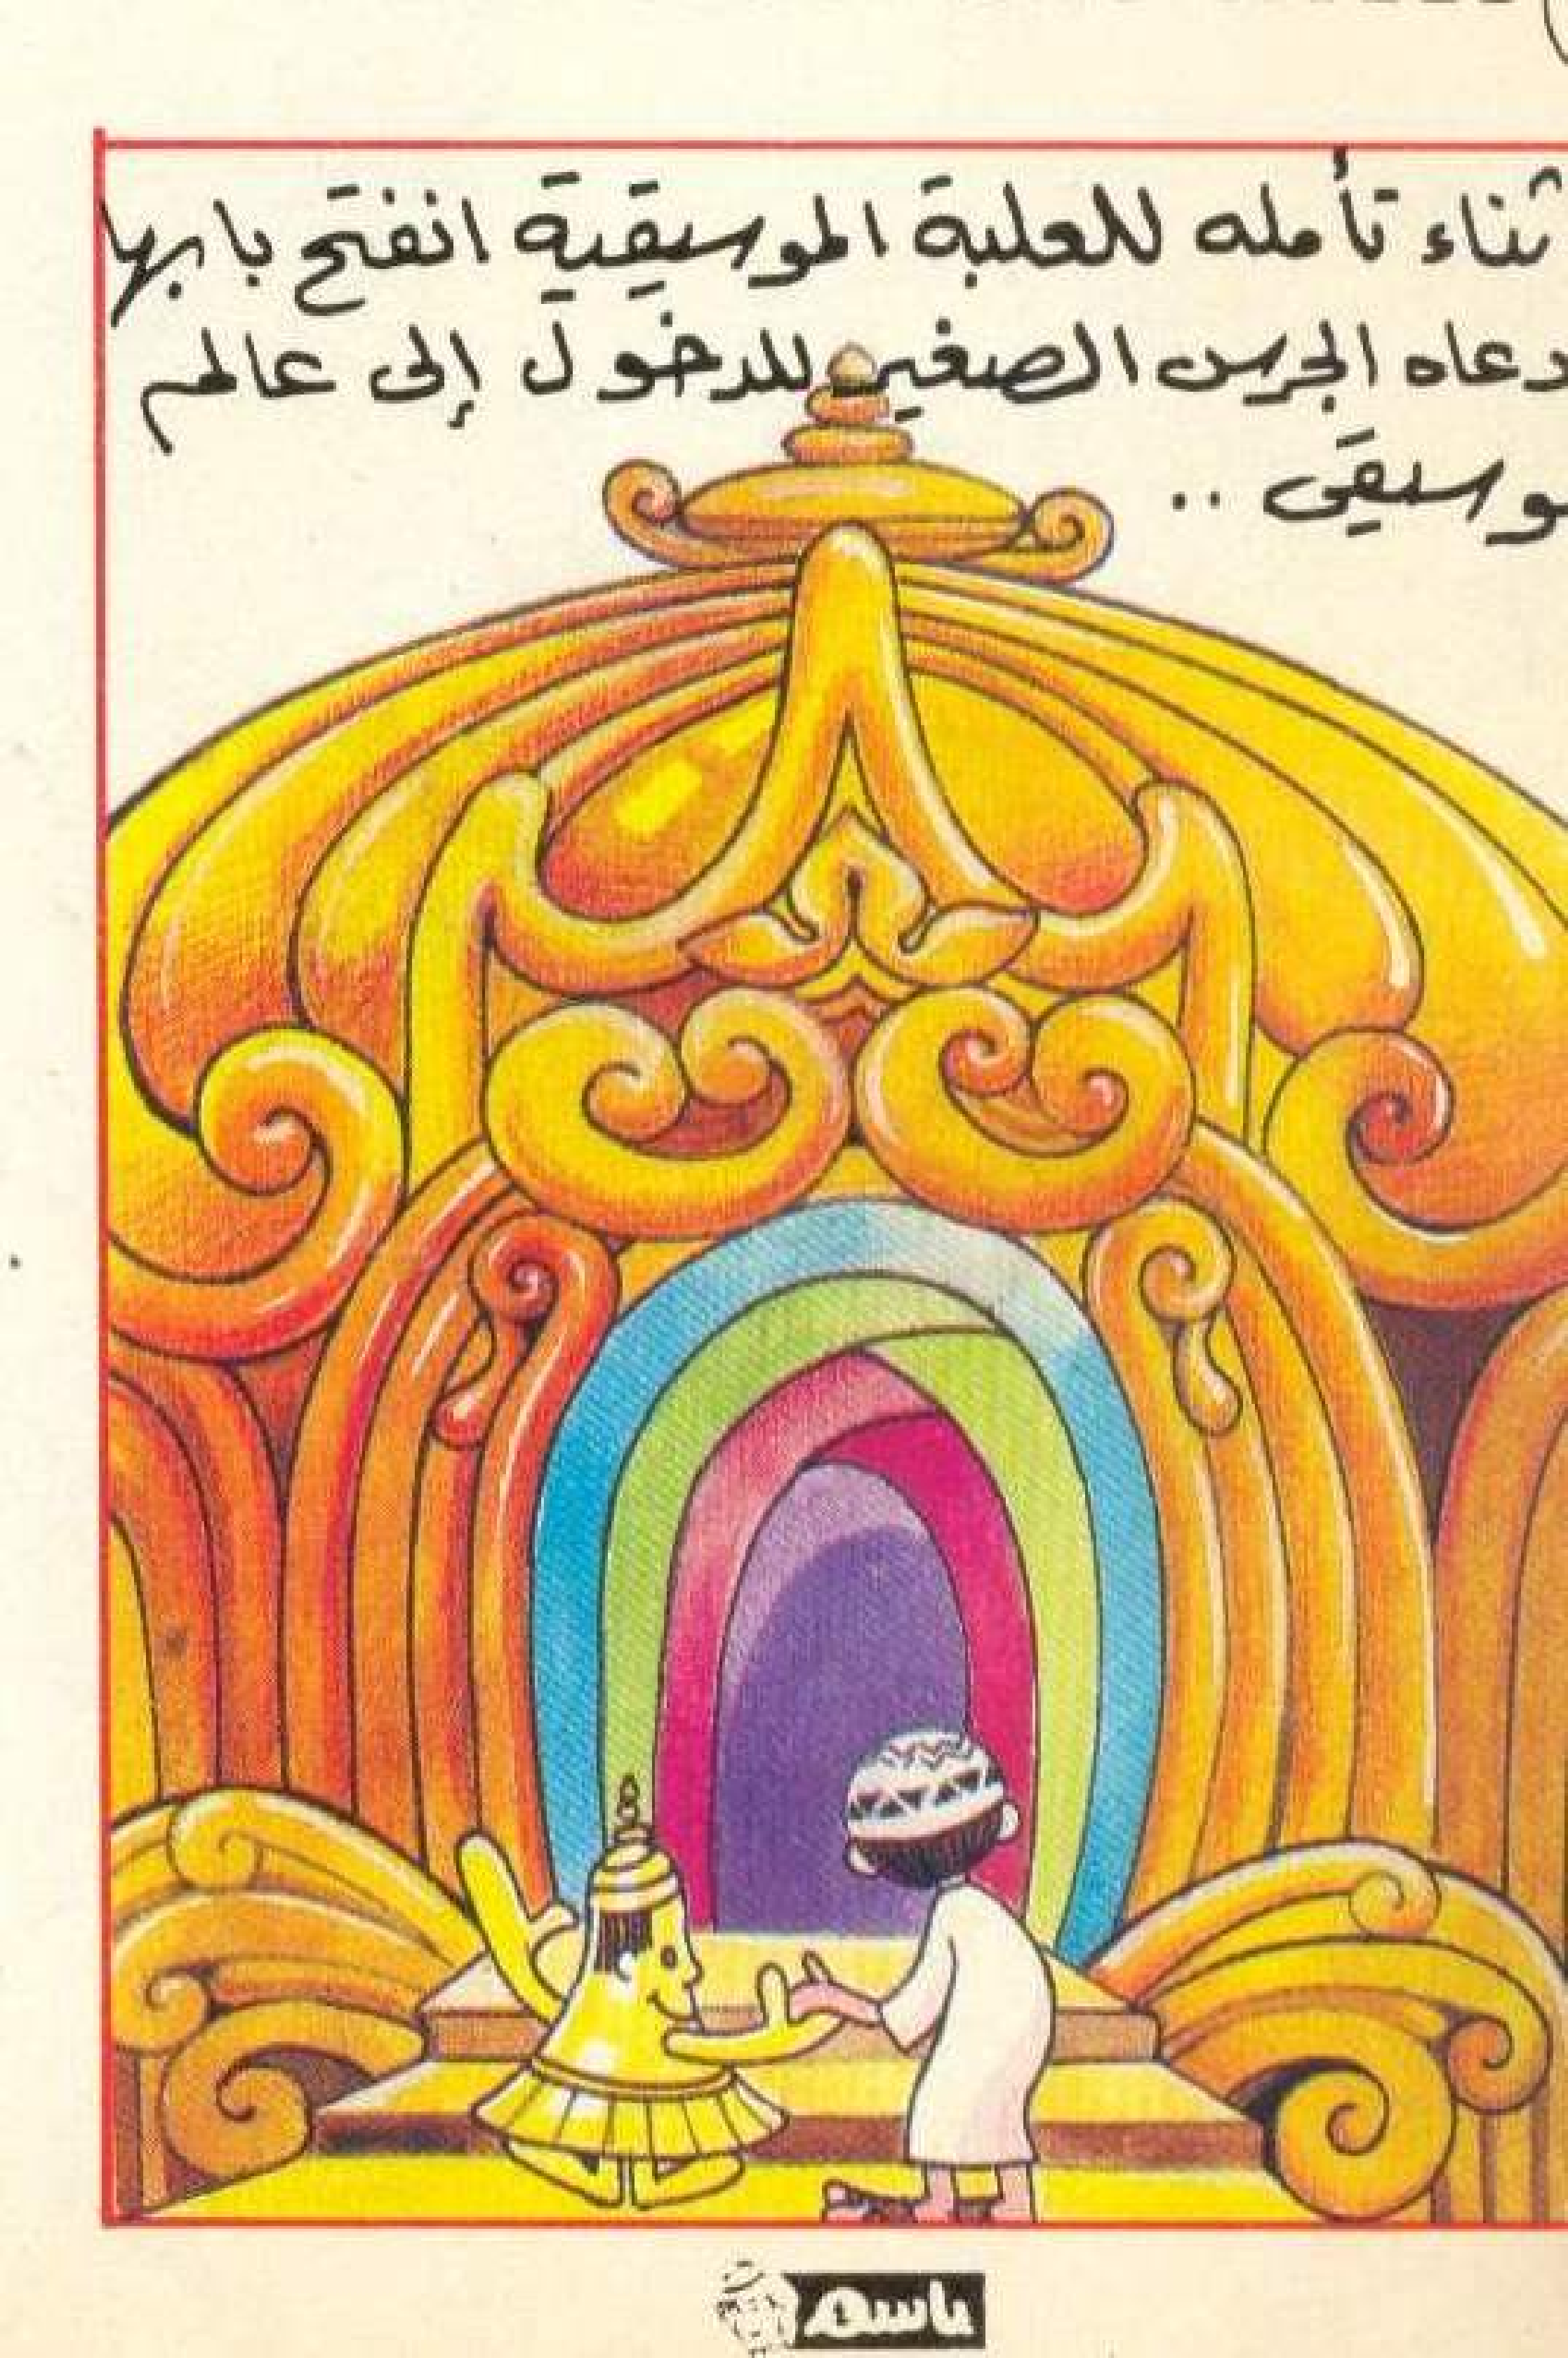 ثناء تأمله للعلبة الموسيقية انفتح بابها
دعاه الجرس الصغير للدخول إلى عالم
وسيقى ..
باسم